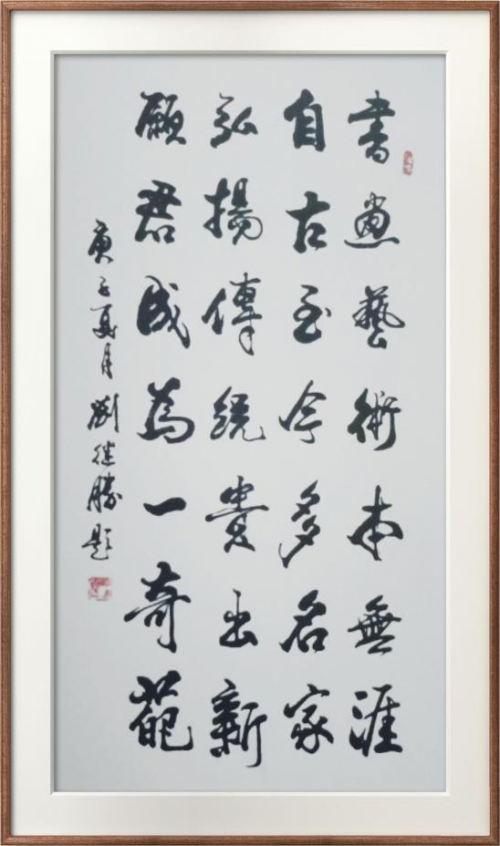 書畫藝術本無涯
自古至今多名家
弘揚傳統貴出新
願君成為一奇葩
庚子夏月劉继勝題